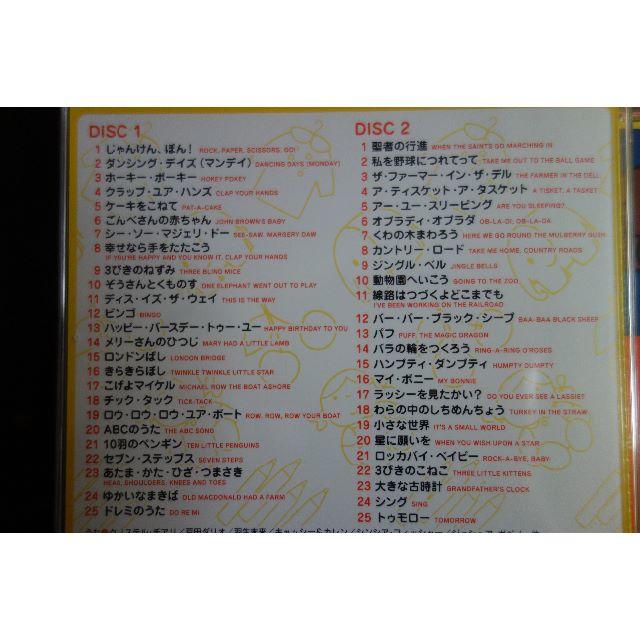 DISC 1
1 じゃんけん、ぽん! ROCK, PAPER, SCISSORS, GO!
2 ダンシング・デイズ (マンデイ) DANCING DAYS (MONDAY)
3 ホーキー・ポーキー HOKEY POKEY
4 クラップ・ユア・ハンズ CLAP YOUR HANDS
5 ケーキをこねて PAT-A-CAKE
6 ごんべさんの赤ちゃん JOHN BROWN'S BABY
7 シー・ソー・マジェリ・ドー SEE-SAW, MARGERY DAW
8 幸せなら手をたたこう
IF YOU'RE HAPPY AND YOU KNOW IT, CLAP YOUR HANDS
9 3びきのねずみ THREE BLIND MICE
10 ぞうさんとくものす ONE ELEPHANT WENT OUT TO PLAY
11 ディス・イズ・ザ・ウェイ THIS IS THE WAY
12 ビンゴ BINGO
13 ハッピー・バースデー・トゥー・ユー HAPPY BIRTHDAY TO YOU
14 メリーさんのひつじ MARY HAD A LITTLE LAMB
15 ロンドンばし LONDON BRIDGE
16 きらきらぼし TWINKLE TWINKLE LITTLE STAR
17 こげよマイケル MICHAEL ROW THE BOAT ASHORE
18 チック・タック TICK-TACK
19 ロウ・ロウ・ロウ・ユア・ボート ROW, ROW, ROW YOUR BOAT
20 ABCのうた THE ABC SONG
21 10羽のペンギン TEN LITTLE PENGUINS
22 セブン・ステップス SEVEN STEPS
23 あたま・かた・ひざ・つまさき
HEAD, SHOULDERS, KNEES AND TOES
24 ゆかいなまきば OLD MACDONALD HAD A FARM
25 ドレミのうた DO RE MI
DISC 2
1 聖者の行進 WHEN THE SAINTS GO MARCHING IN
2 私を野球につれてって TAKE ME OUT TO THE BALL GAME
3 ザ・ファーマー・イン・ザ・デル THE FARMER IN THE DELL
4 ア・ティスケット・ア・タスケット A TISKET, A TASKET
5 アー・ユー・スリーピング ARE YOU SLEEPING?
6 オブラディ・オブラダ OB-LA-DI, OB-LA-DA
7 くわの木まわろう HERE WE GO ROUND THE MULBERRY BUSH
8 カントリー・ロード TAKE ME HOME, COUNTRY ROADS
9 ジングル・ベル JINGLE BELLS
10 動物園へいこう GOING TO THE ZOO
11 線路はつづくよどこまでも
I'VE BEEN WORKING ON THE RAILROAD
12 バー・バー・ブラック・シープ BAA-BAA BLACK SHEEP
13 パフ PUFF, THE MAGIC DRAGON
14 バラの輪をつくろう RING-A-RING O'ROSES
15 ハンプティ・ダンプティ HUMPTY DUMPTY
16 マイ・ボニー MY BONNIE
17 ラッシーを見たかい? DO YOU EVER SEE A LASSIE?
18 わらの中のしちめんちょう TURKEY IN THE STRAW
19 小さな世界 IT'S A SMALL WORLD
20 星に願いを WHEN YOU WISH UPON A STAR
21 ロッカバイ・ベイビー ROCK-A-BYE, BABY
22 3びきのこねこ THREE LITTLE KITTENS
23 大きな古時計 GRANDFATHER'S CLOCK
24 シング SING
25 トゥモロー TOMORROW